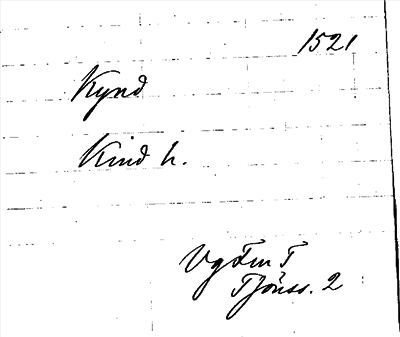 1521
Kynd
Kind h.
Vg Fm T
Tjönss. 2